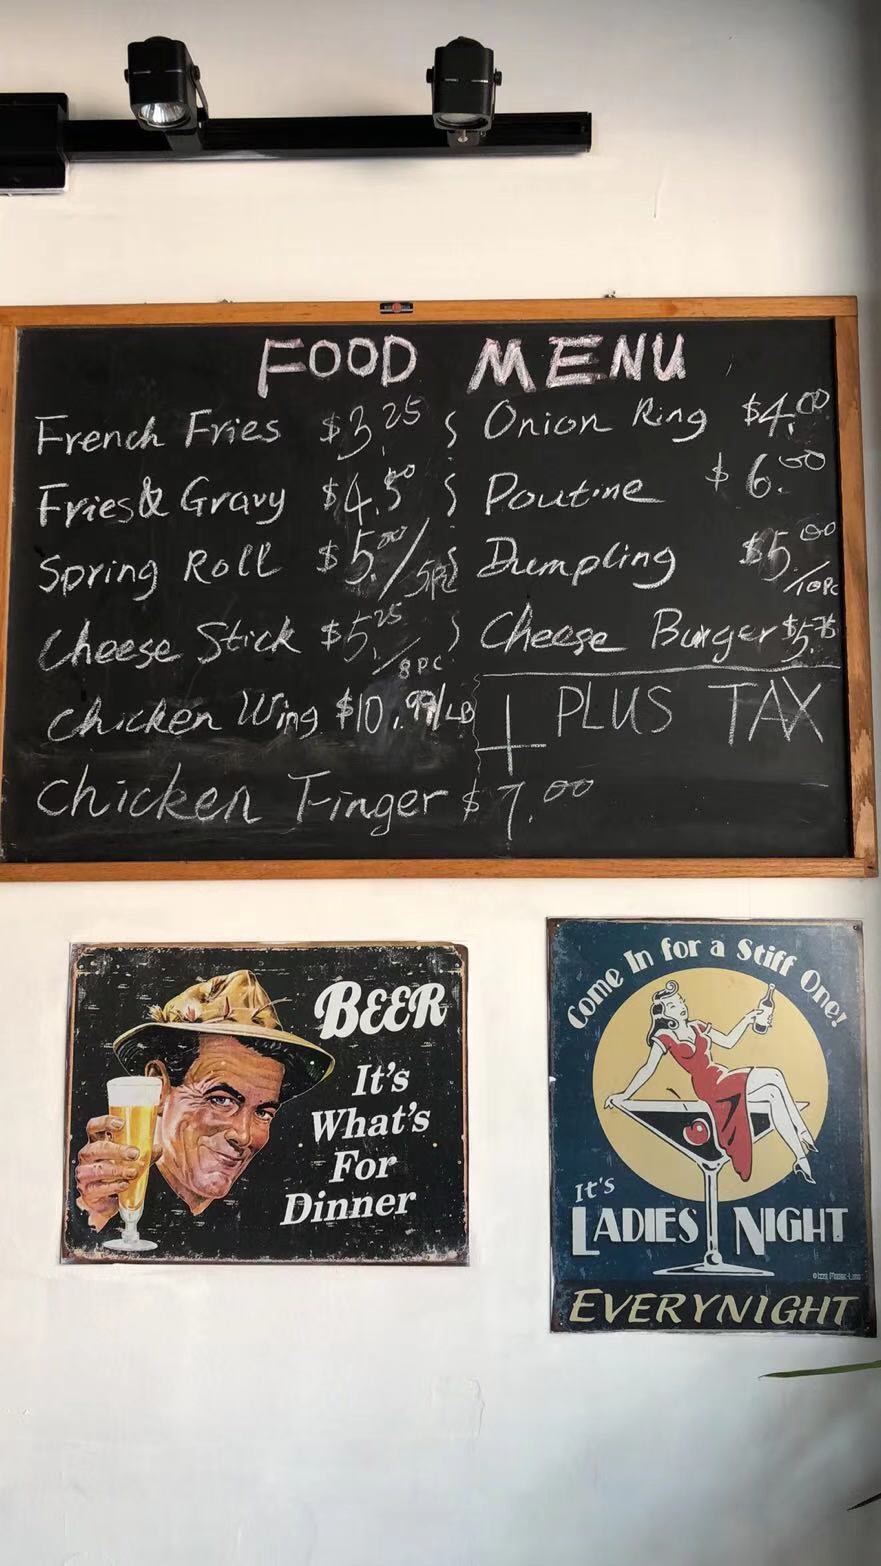 FOOD MENU
French Fries $3.25
Onion Ring $4.00
Fries & Gravy $4.50
Poutine $6.00
Spring Roll $5.00/5pc
Dumpling $5.00/10Pc
Cheese Stick $5.25/8PC
Cheese Burger $5.75
Chicken Wing $10.99/LB
+ PLUS TAX
Chicken Finger $7.00
BEER
It's
What's
For
Dinner
Come In for a Stiff One!
It's
LADIES NIGHT
EVERYNIGHT